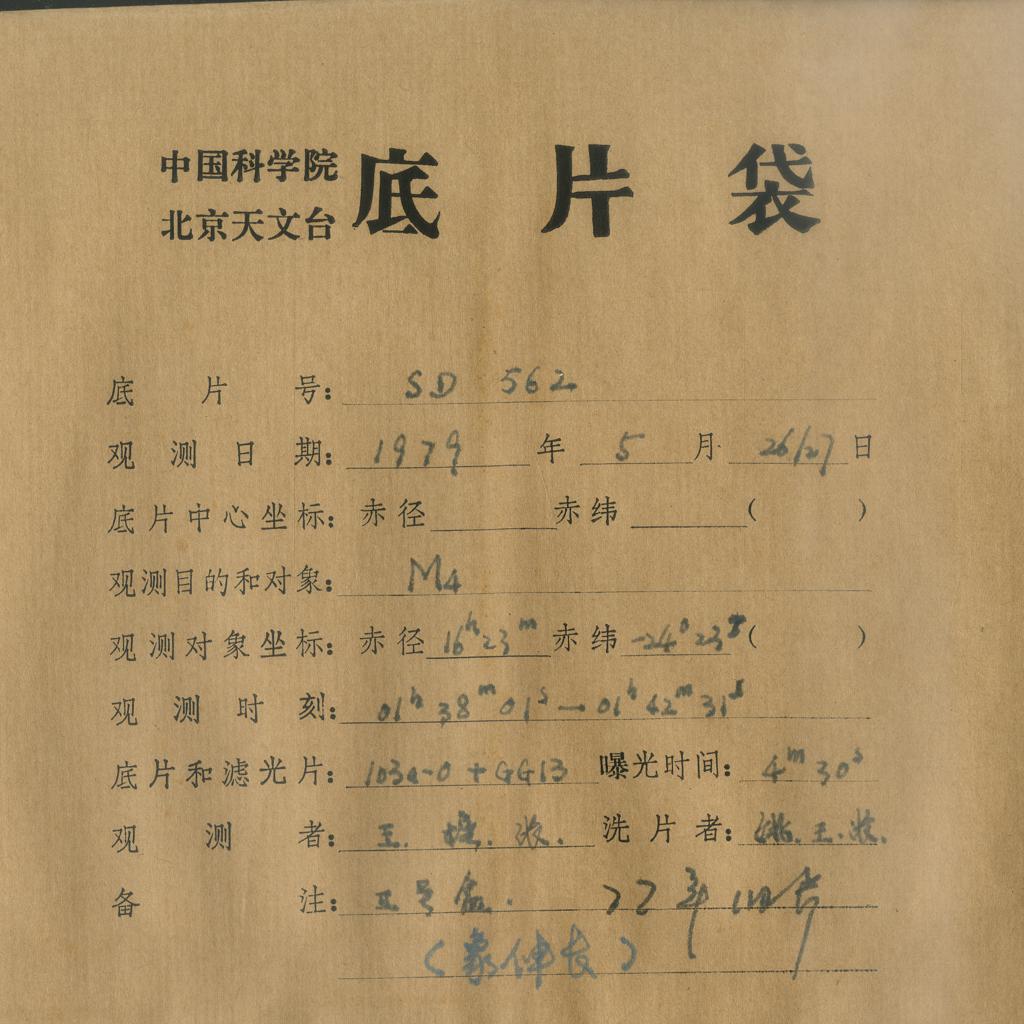 中国科学院
北京天文台
底片袋
底片号: SD 562
观测日期: 1979年5月26/27日
底片中心坐标: 赤径 赤纬 ( )
观测目的和对象: M4
观测对象坐标: 赤径 16h23m 赤纬 -24°23 ( )
观测时刻: 01h38m01s→01h42m31s
底片和滤光片: 103a-O+GG13 曝光时间: 4m30s
观测者: 王. 张. 洗片者: 王.
备注: II号盒.
(象伸长)